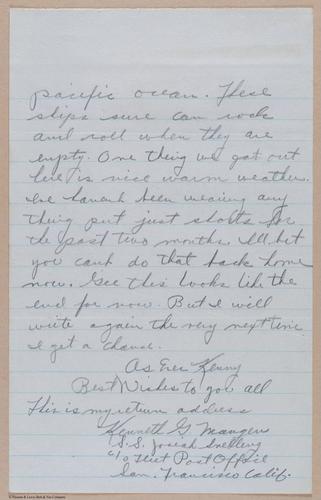 pacific ocean. These
ships sure can rock
and roll when they are
empty. One thing we got out
here is nice warm weather.
I've havent been wearing any
thing put just shorts for
the past two months. I'll bet
you cant do that back home
now. Gee this looks like the
end for now. But I will
write again the very next time
I get a chance.
As Ever Kenny
Best Wishes to you all
This is my return address
Kenneth G Mangen
S.S. Josiah Snelling
c/o Fleet Post Office
San Francisco Calif.